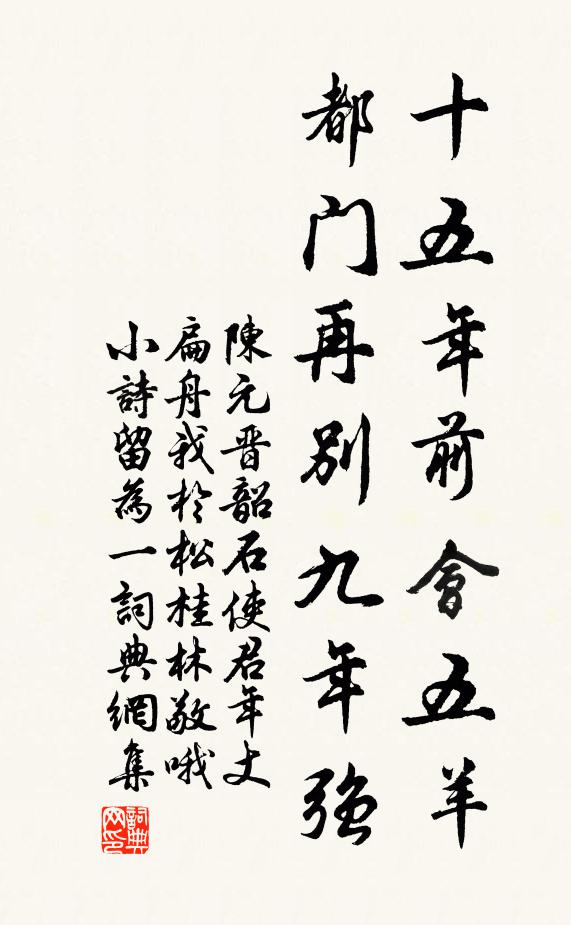 十五年前會五羊
都門再別九年強
陳元晋韶石使君年丈
扁舟我於松桂林敬哦
小詩留為一詞典網集
詞典網印